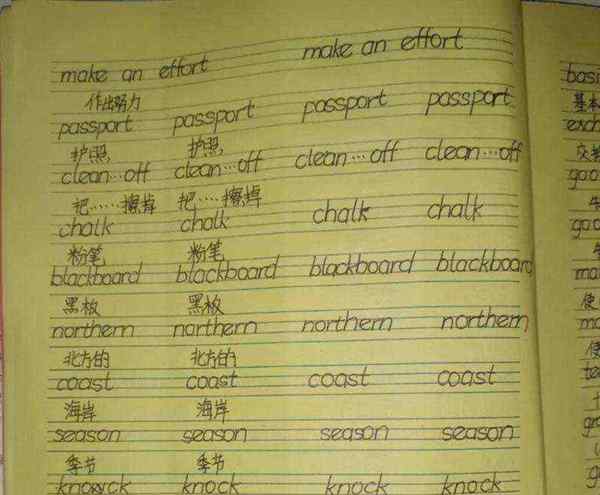 make an effort make an effort
作出努力
passport passport passport passport
护照 护照
clean…off clean…off clean…off clean…off
把……擦掉 把……擦掉
chalk chalk chalk chalk
粉笔 粉笔
blackboard blackboard blackboard blackboard
黑板 黑板
northern northern northern northern
北方的 北方的
coast coast coast coast
海岸 海岸
season season season season
季节 季节
knock knock knock
basi
基本
exch
交换
goo
goo
ma
使
ma
使
te
gr
g